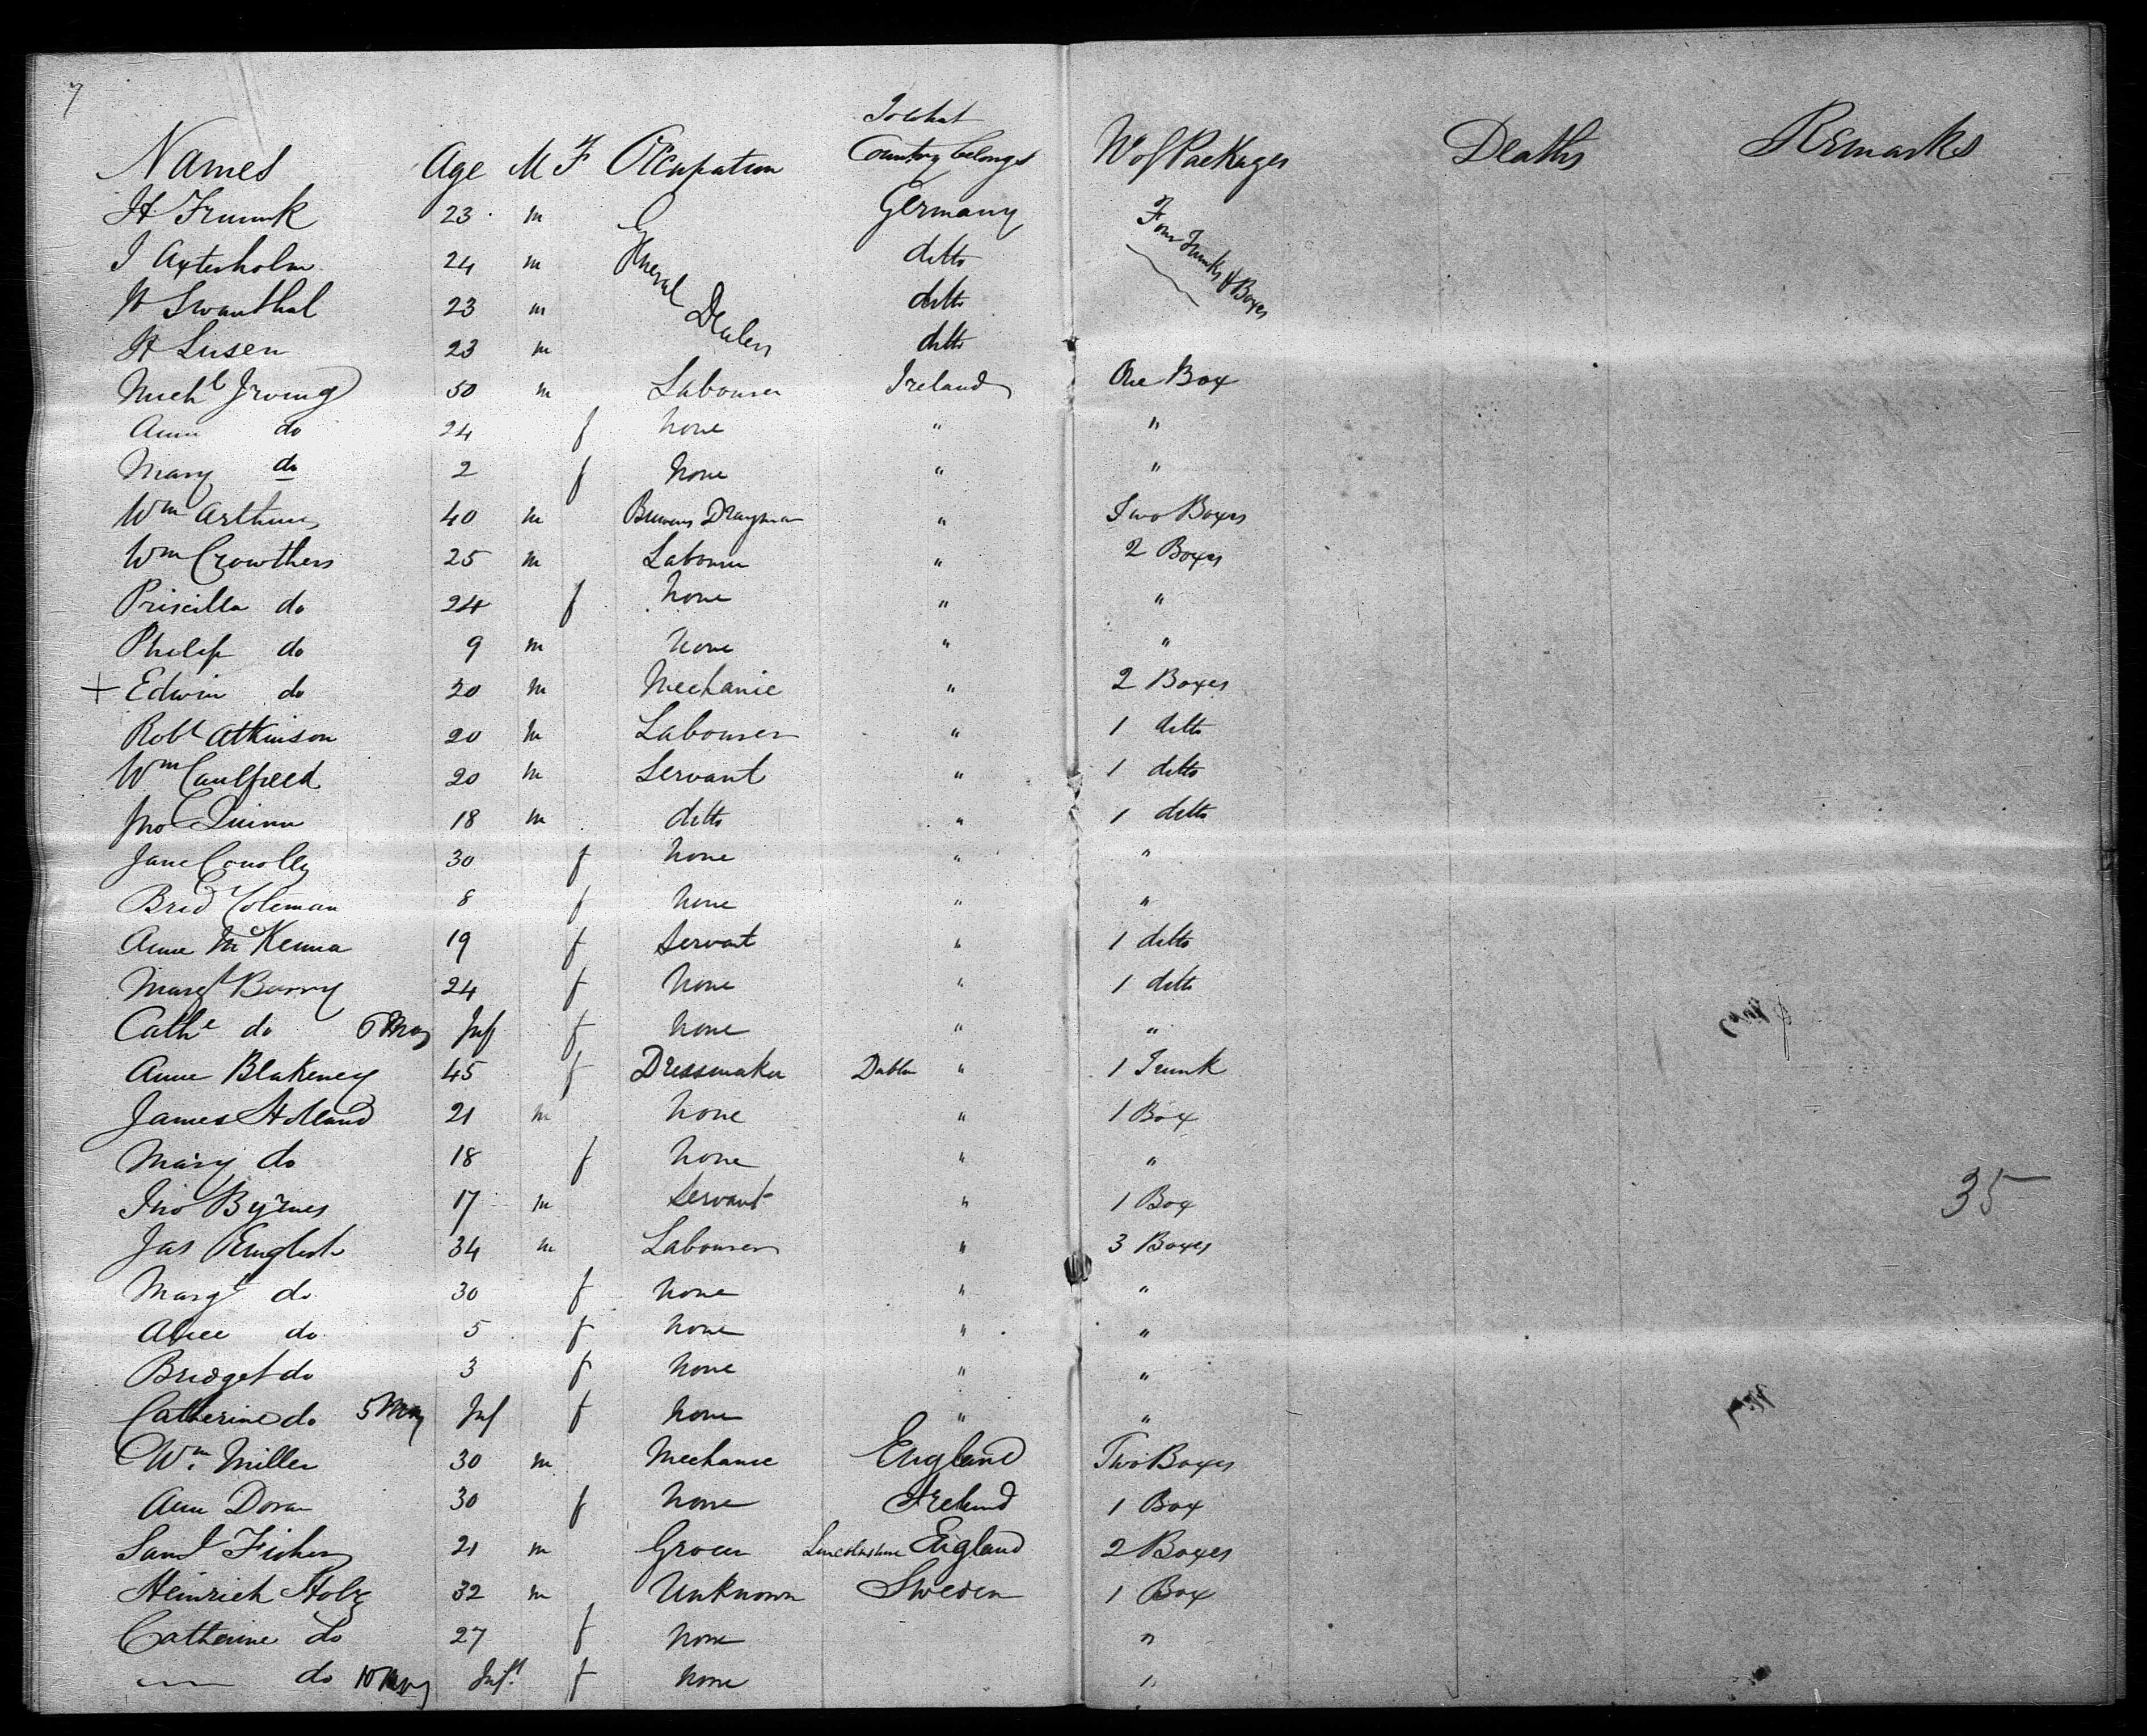 7
Names Age M F Occupation To what Country belongs No of Packages Deaths Remarks
H 23 m General Dealers Germany Four Trunks & Boxes
I Axterholm 24 m ditto
H Swanthal 23 m ditto
H Lusen 23 m ditto
Michl Irving 50 m Labourer Ireland One Box
Ann do 24 f None " "
Mary do 2 f None " "
Wm Arthurs 40 m Brewers Drayman " Two Boxes
Wm Crowthers 25 m Labourer " 2 Boxes
Priscilla do 24 f None " "
Philip do 9 m None " "
+ Edwin do 20 m Mechanic " 2 Boxes
Robt Atkinson 20 m Labourer " 1 ditto
Wm Caulfield 20 m Servant " 1 ditto
Jno Quinn 18 m ditto " 1 ditto
Jane Conolly 30 f None " "
Brid Coleman 8 f None " "
Anne McKenna 19 f Servant " 1 ditto
Margt Barry 24 f None " 1 ditto
Cathe do 6 Mos Inf f None " "
Anne Blakeney 45 f Dressmaker Dublin " 1 Trunk
James Holland 21 m None " 1 Box
Mary do 18 f None " "
Jno Byrnes 17 m Servant " 1 Box 35
Jas English 34 m Labourer " 3 Boxes
Margt do 30 f None " "
Alice do 5 f None " "
Bridget do 3 f None " "
Catherine do 5 Mos Inf f None " "
Wm. Miller 30 m Mechanic England Two Boxes
Ann Doran 30 f None Ireland 1 Box
Saml Fisher 21 m Grocer Lincolnshire England 2 Boxes
Heinrich Holz 32 m Unknown Sweden 1 Box
Catherine do 27 f None "
do 10 Mos Inft f None "